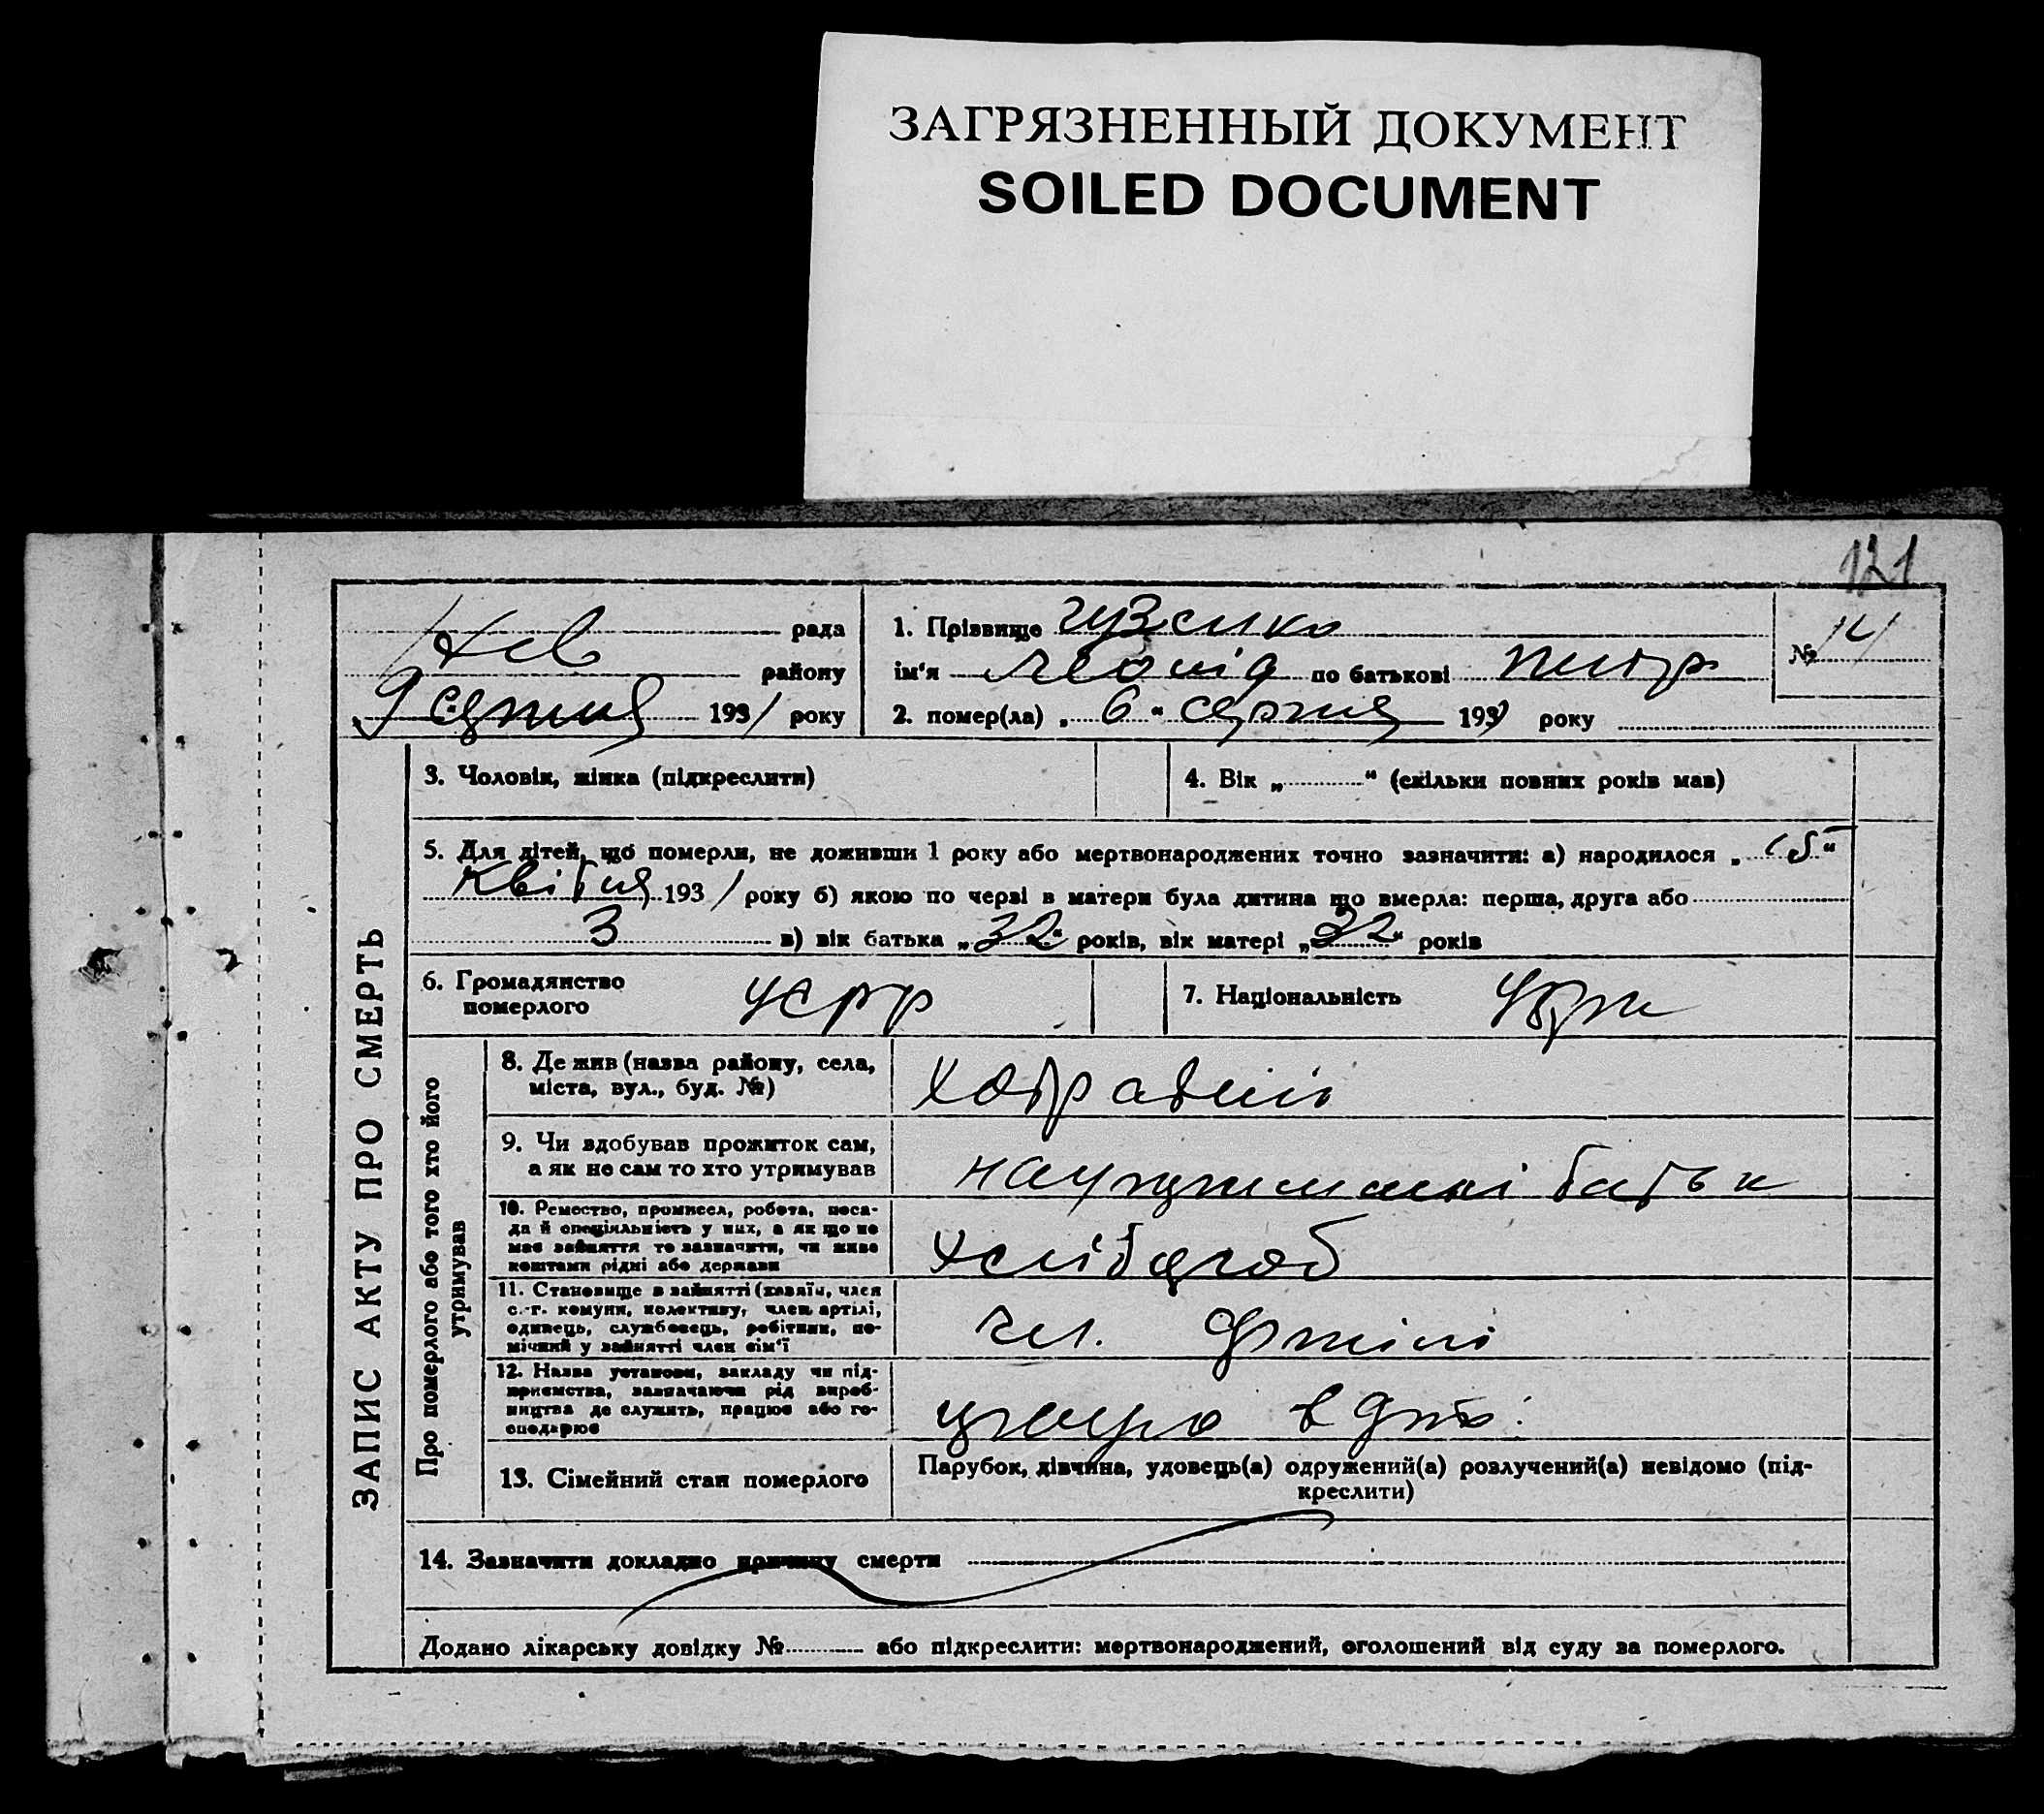 ЗАГРЯЗНЕННЫЙ ДОКУМЕНТ
SOILED DOCUMENT
121
рада
району
9 серпня 1931 року
1. Прізвище Гузенко
ім'я Леонід по батькові Петр
№ 14
2. помер(ла) „ 6 “ серпня 1931 року
ЗАПИС АКТУ ПРО СМЕРТЬ
3. Чоловік, жінка (підкреслити)
4. Вік „ “ (скільки повних років мав)
5. Для дітей, що померли, не доживши 1 року або мертвонароджених точно зазначити: а) народилося „ 15 “
квітня 1931 року б) якою по черзі в матери була дитина що вмерла: перша, друга або
3 в) вік батька „ 32 “ років, вік матері „ 32 “ років
6. Громадянство
померлого УСРР
7. Національність Укр
Про померлого або того хто його
утримував
8. Де жив (назва району, села,
міста, вул., буд. №)
9. Чи здобував прожиток сам,
а як не сам то хто утримував
на утриманні батьк
10. Ремество, промисел, робота, поса-
да й спеціяльність у них, а як що не
має зайняття то зазначити, чи живе
коштами рідні або держави
хлібороб
11. Становище в зайнятті (хазяїн, член
с.-г. комуни, колективу, член артілі,
одинець, службовець, робітник, по-
мічний у зайнятті член сім'ї
чл. артілі
12. Назва установи, закладу чи під-
приємства, зазначаючи рід вироб-
ництва де служить, працює або го-
сподарює
працює в арт.
13. Сімейний стан померлого
Парубок, дівчина, удовець(а) одружений(а) розлучений(а) невідомо (під-
креслити)
14. Зазначити докладно причину смерти
Додано лікарську довідку № або підкреслити: мертвонароджений, оголошений від суду за померлого.